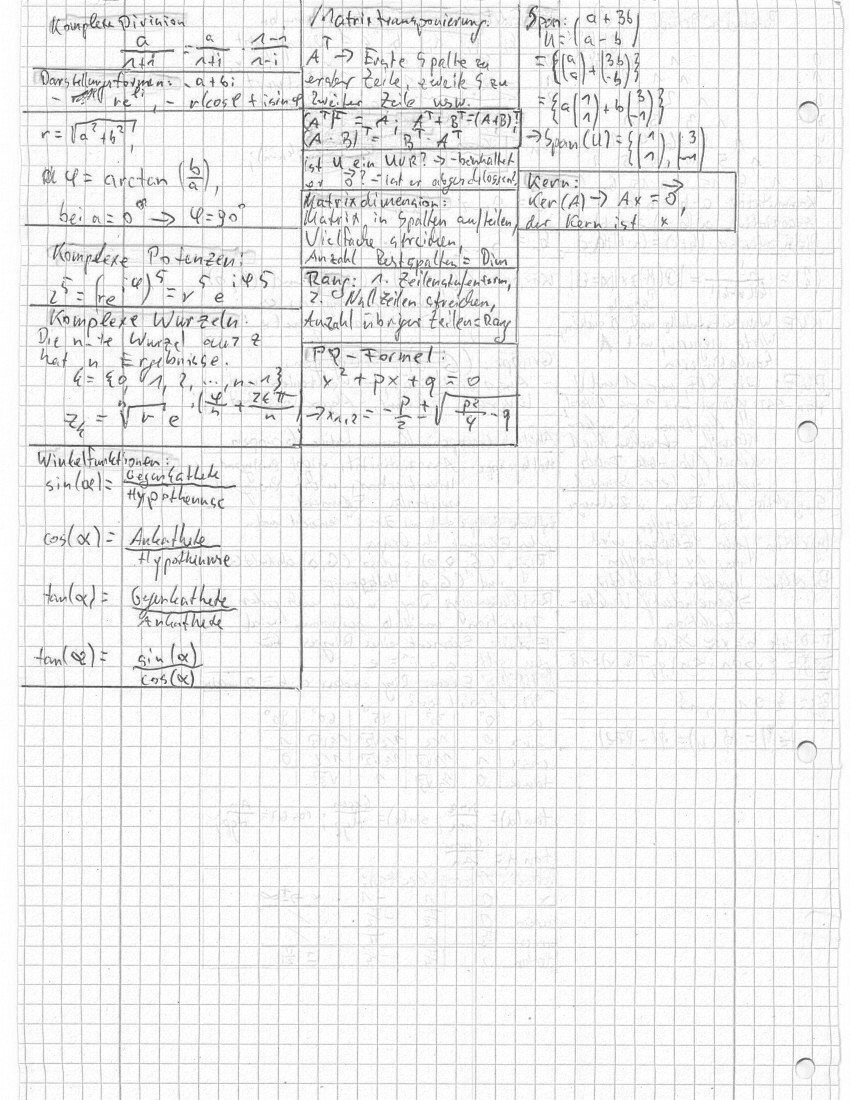 Komplexe Division
a/(1+i) = a/(1+i) · (1-i)/(1-i)
Darstellungsformen: - a+bi
- re^φi, - r(cosφ + i sinφ
r = √(a²+b²),
φ = arctan (b/a),
bei a = 0 → φ = 90°
Komplexe Potenzen:
z⁵ = (re^iφ)⁵ = r⁵ e^iφ5
Komplexe Wurzeln:
Die n-te Wurzel aus z
hat n Ergebnisse.
k = {0, 1, 2, ..., n-1}
z_k = ⁿ√r e^i(φ/n + 2kπ/n)
Winkelfunktionen:
sin(α) = Gegenkathete/Hypothenuse
cos(α) = Ankathete/Hypothenuse
tan(α) = Gegenkathete/Ankathete
tan(α) = sin(α)/cos(α)
Matrixtransponierung:
A^T → Erste Spalte zu
erster Zeile, zweite S zu
zweiter Zeile usw.
(A^T)^T = A; A^T + B^T = (A+B)^T,
(A · B)^T = B^T · A^T
ist U ein UVR? → - beinhaltet
er 0⃗? - ist er abgeschlossen?
Matrixdimension:
Matrix in Spalten aufteilen,
Vielfache streichen,
Anzahl Restspalten = Dim
Rang: 1. Zeilenstufenform,
2. Nullzeilen streichen,
Anzahl übriger Zeilen = Rang
PQ-Formel:
x² + px + q = 0
→ x₁,₂ = -p/2 ± √(p²/4 - q)
Span: U = (a + 3b
a - b)
= {(a a) + (3b -b)}
= {a(1 1) + b(3 -1)}
→ Span(U) = {(1 1), (3 -1)
Kern:
Ker(A) → Ax = 0⃗,
der Kern ist x